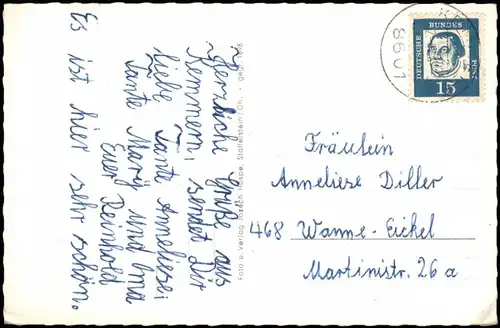 Herzliche Grüße aus
Kemmern, sendet Dir
liebe Tante Anneliese
Tante Mary und Ina
Euer Reinhold
Es ist hier sehr schön.
Foto u. Verlag Joseph Staffelstein/Ofr.
8601
DEUTSCHE
BUNDES
POST
15
Fräulein
Anneliese Diller
468 Wanne-Eickel
Martinistr. 26a